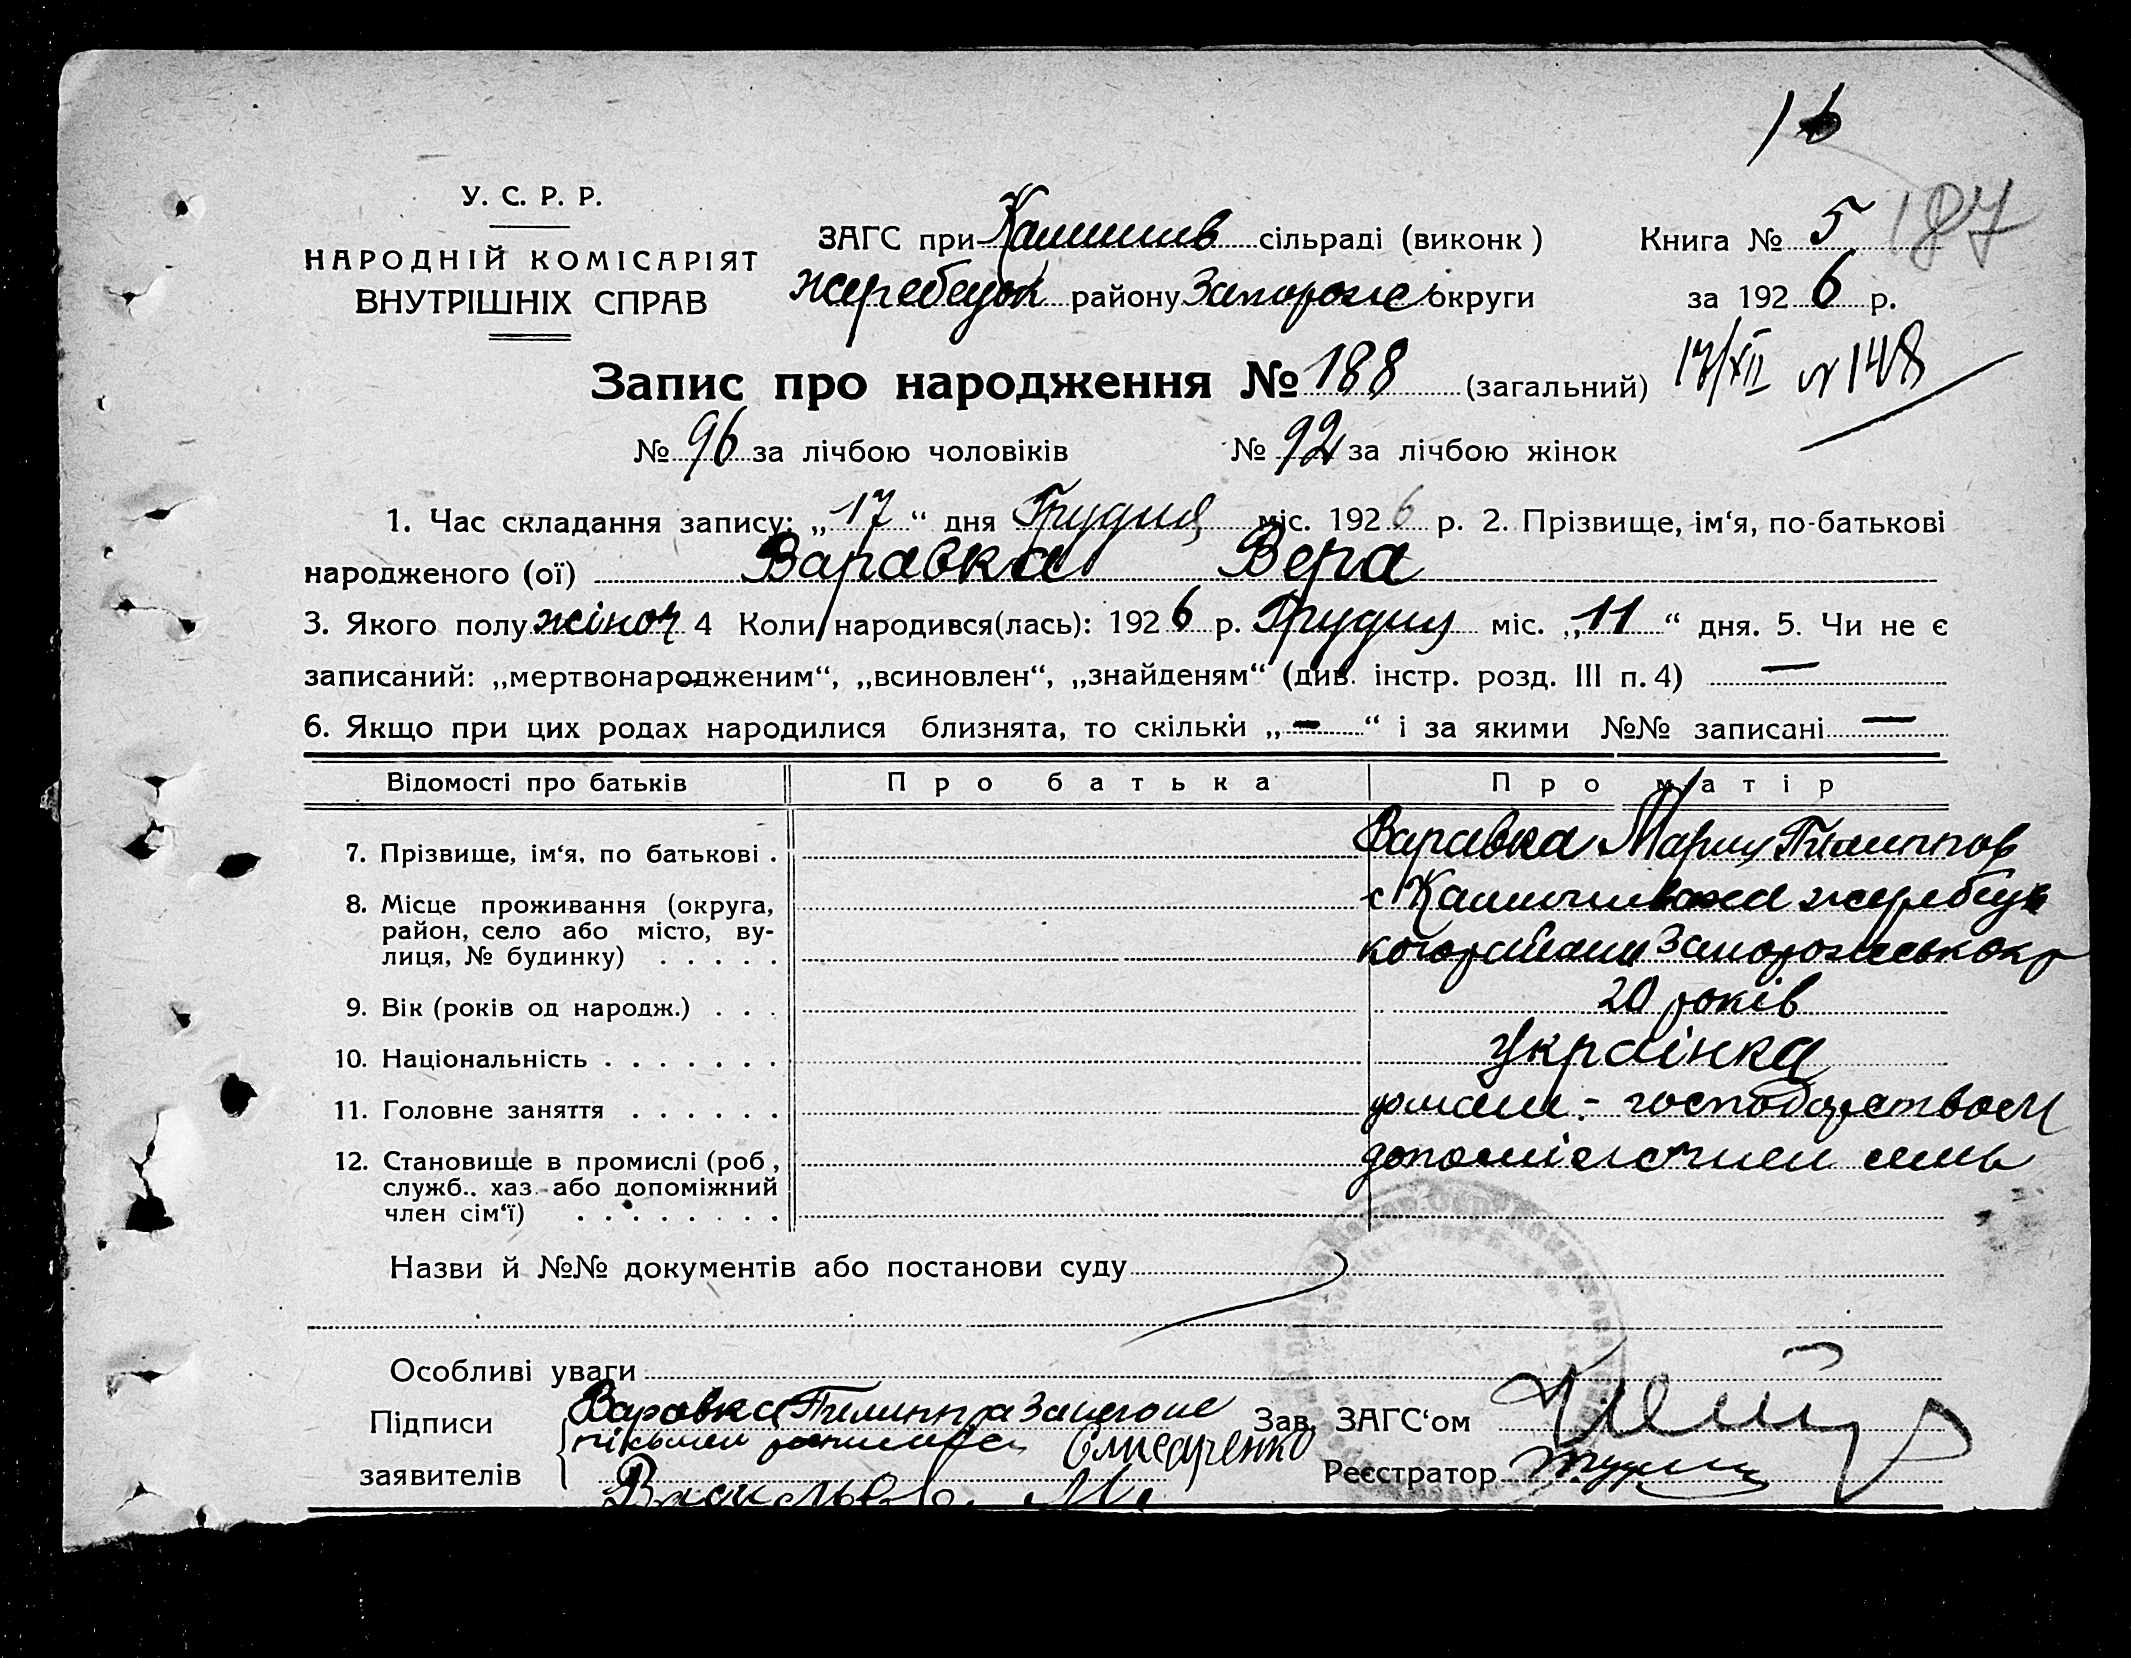 16
У. С. Р. Р.
НАРОДНІЙ КОМІСАРІЯТ
ВНУТРІШНІХ СПРАВ
ЗАГС при сільраді (виконк)
Книга № 5 187
Жеребецьк району Запорож округи
за 1926 р.
Запис про народження № 188 (загальний) 17/XII № 148
№ 96 за лічбою чоловіків № 92 за лічбою жінок
1. Час складання запису: „17“ дня Грудня міс. 1926 р. 2. Прізвище, ім‘я, по-батькові
народженого (ої) Варавка Вера
3. Якого полу жіноч 4 Коли народився(лась): 1926 р. Грудня міс. „11“ дня. 5. Чи не є
записаний: „мертвонародженим“, „всиновлен“, „знайденям“ (див. інстр. розд. III п. 4) —
6. Якщо при цих родах народилися близнята, то скільки „—“ і за якими №№ записані —
Відомості про батьків Про батька Про матір
7. Прізвище, ім‘я, по батькові . Варавка Мария Пилиппов
8. Місце проживання (округа,
район, село або місто, ву-
лиця, № будинку) . . . . .
9. Вік (років од народж.) . . . 20 років
10. Національність . . . . . . . Українка
11. Головне заняття . . . . . . господарством
12. Становище в промислі (роб,
служб.. хаз. або допоміжний
член сім‘ї) . . . . . . . .
Назви й №№ документів або постанови суду
Особливі уваги
Підписи Варавка Пилиппа
заявителів Єлисаренко
Зав. ЗАГС‘ом
Реєстратор